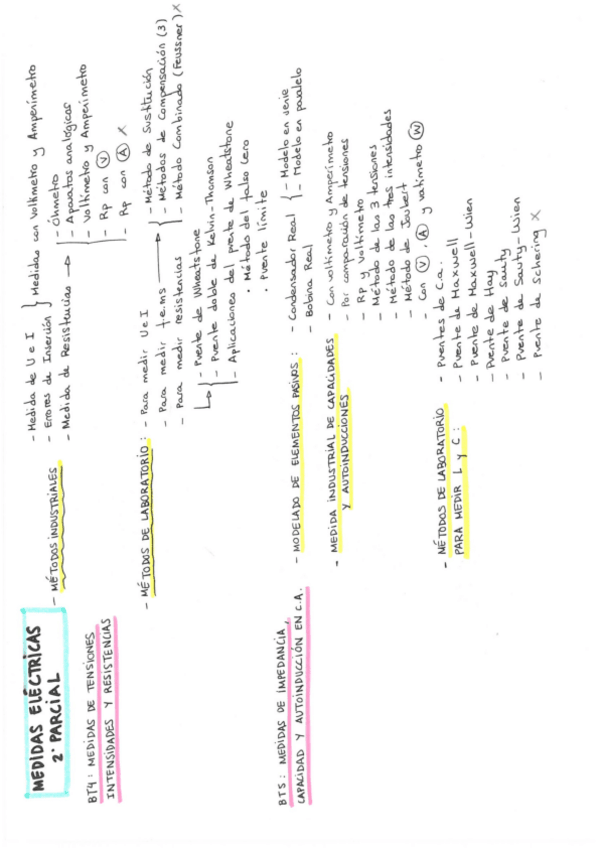 MEDIDAS ELÉCTRICAS
2º PARCIAL
BT4: MEDIDAS DE TENSIONES
INTENSIDADES Y RESISTENCIAS
- MÉTODOS INDUSTRIALES
- Medida de U e I
- Errores de Inserción
} Medidas con Voltímetro y Amperímetro
- Medida de Resistencias →
- Óhmetro
- Aparatos analógicos
- Voltímetro y Amperímetro
- Rp con V
- Rp con A X
- MÉTODOS DE LABORATORIO:
- Para medir U e I
- Para medir f.e.ms →
- Método de Sustitución
- Métodos de Compensación (3)
- Método Combinado (Feussner) X
- Para medir resistencias
- Puente de Wheatstone
- Puente doble de Kelvin-Thomson
- Aplicaciones del puente de Wheatstone
· Método del falso Cero
· Puente límite
BT5: MEDIDAS DE IMPEDANCIA,
CAPACIDAD Y AUTOINDUCCIÓN EN C.A.
- MODELADO DE ELEMENTOS PASIVOS:
- Condensador Real
- Modelo en serie
- Modelo en paralelo
- Bobina Real
- MEDIDA INDUSTRIAL DE CAPACIDADES
Y AUTOINDUCCIONES
- Con voltímetro y Amperímetro
- Por comparación de tensiones
- Rp y voltímetro
- Método de las 3 tensiones
- Método de las tres intensidades
- Método de Joubert
- Con V, A y vatímetro W
- MÉTODOS DE LABORATORIO
PARA MEDIR L y C:
- Puentes de C.a.
- Puente de Maxwell
- Puente de Maxwell-Wien
- Puente de Hay
- Puente de Sauty
- Puente de Sauty-Wien
- Puente de Schering X